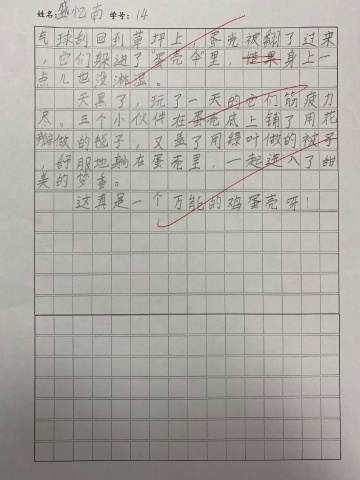 姓名:盛忆南 学号:14
气球刮回到草坪上,蛋壳被翻了过来
,它们躲进了“蛋壳伞”里,结果身上一
点儿也没淋湿。
天黑了,玩了一天的它们筋疲力
尽。三个小伙伴在蛋壳底上铺了用花
瓣做的毯子,又盖了用绿叶做的被子
,舒服地躺在蛋壳里,一起进入了甜
美的梦乡。
这真是一个万能的鸡蛋壳呀!